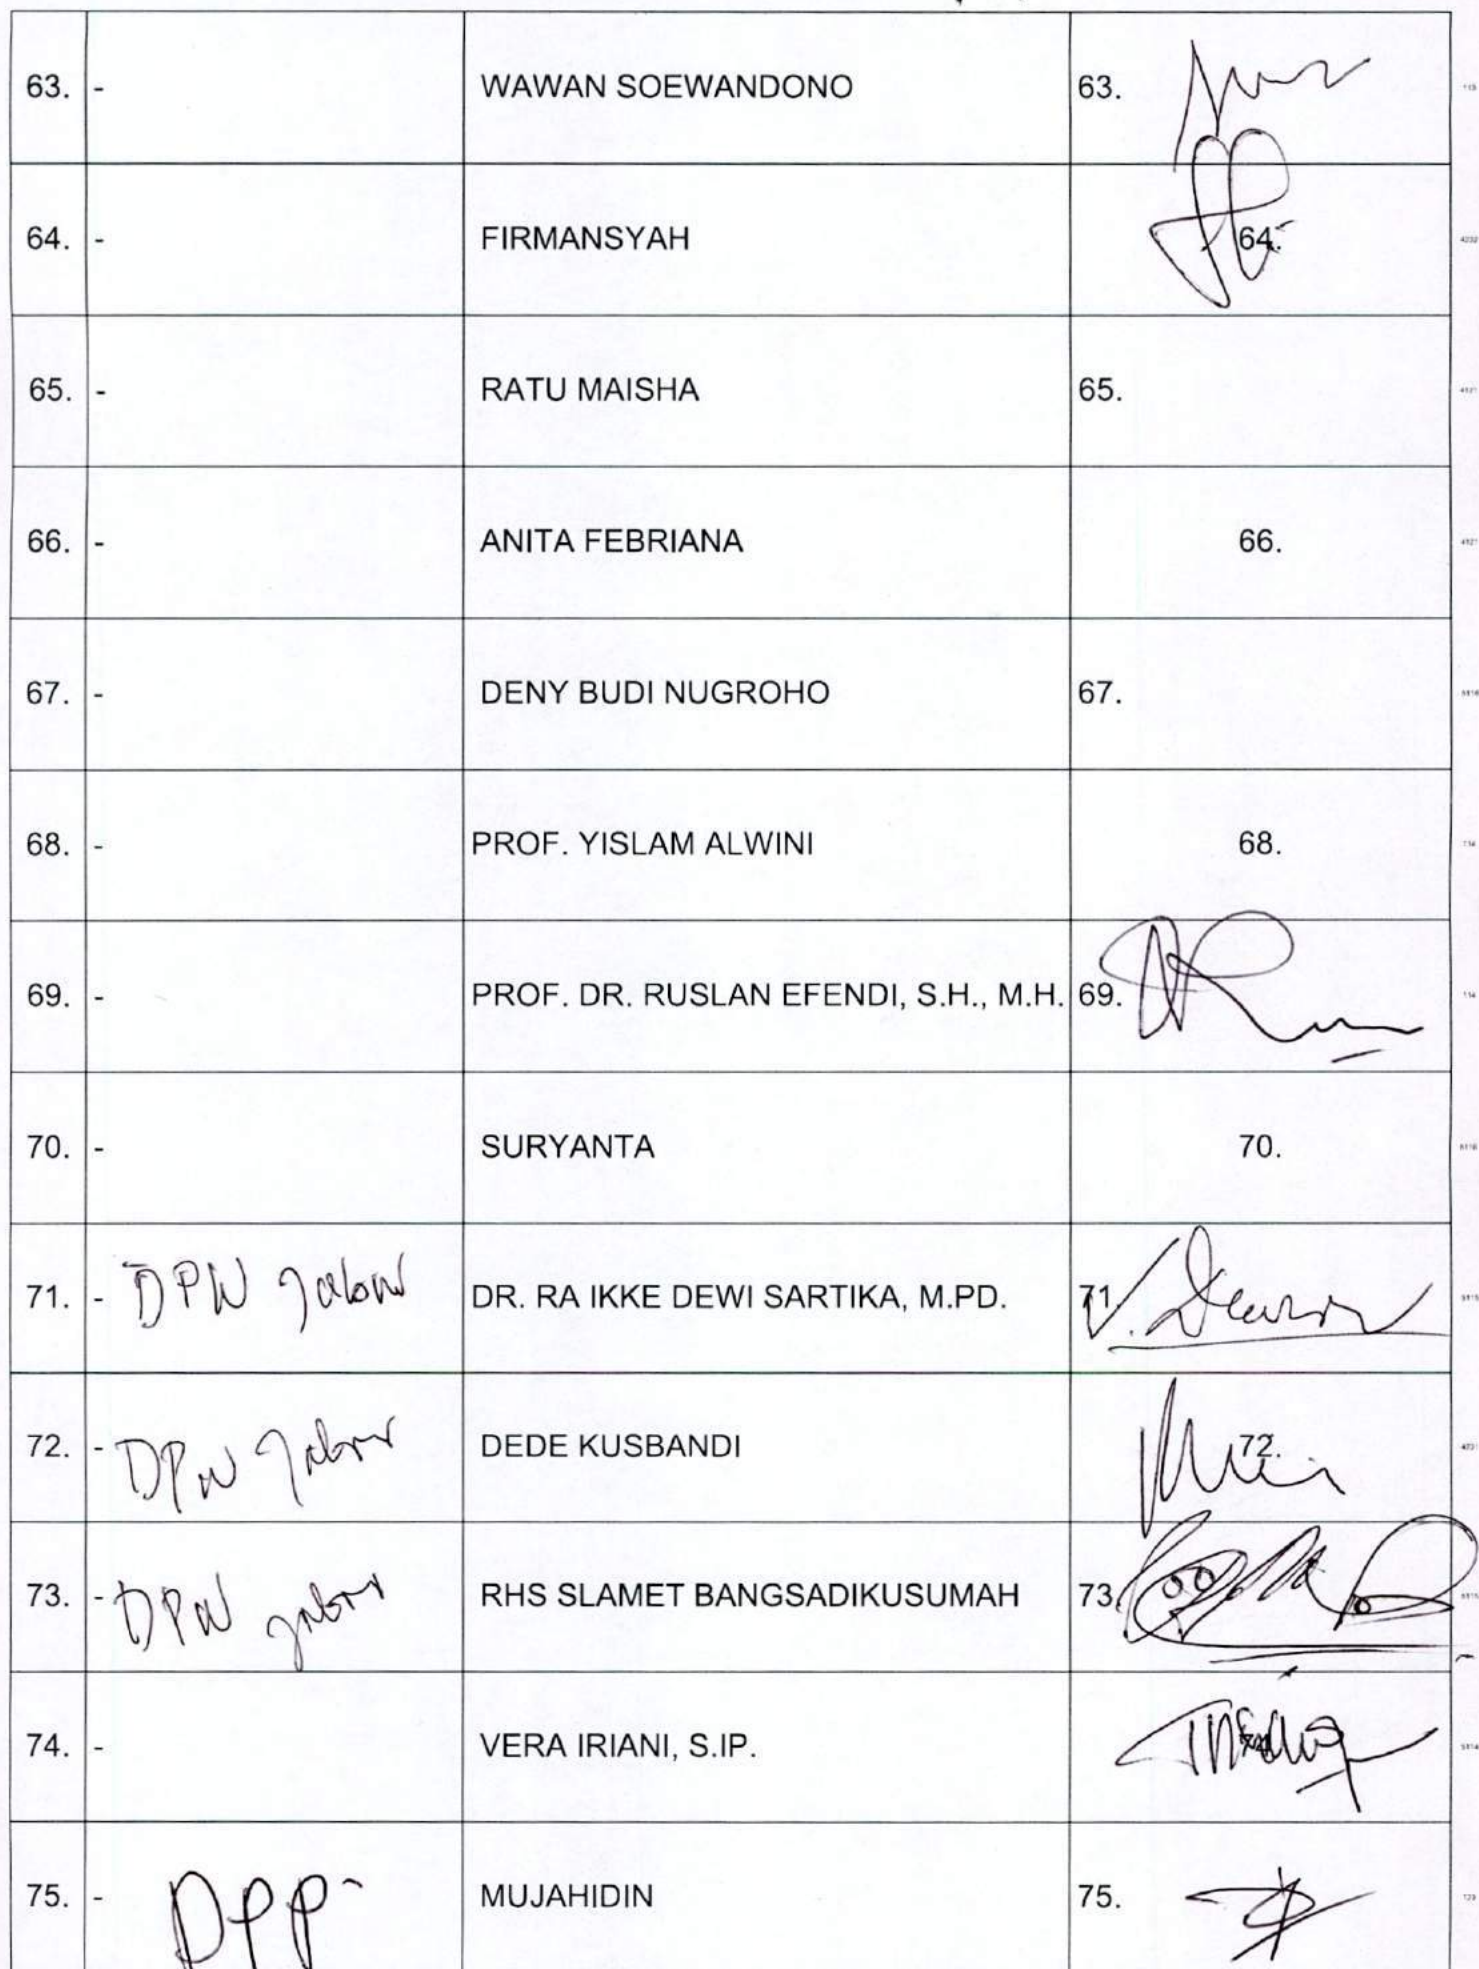 63. - WAWAN SOEWANDONO 63.
64. - FIRMANSYAH 64.
65. - RATU MAISHA 65.
66. - ANITA FEBRIANA 66.
67. - DENY BUDI NUGROHO 67.
68. - PROF. YISLAM ALWINI 68.
69. - PROF. DR. RUSLAN EFENDI, S.H., M.H. 69.
70. - SURYANTA 70.
71. - DPW Jabar DR. RA IKKE DEWI SARTIKA, M.PD. 71.
72. - DPW Jabar DEDE KUSBANDI 72.
73. - DPW Jabar RHS SLAMET BANGSADIKUSUMAH 73.
74. - VERA IRIANI, S.IP.
75. - DPP MUJAHIDIN 75.